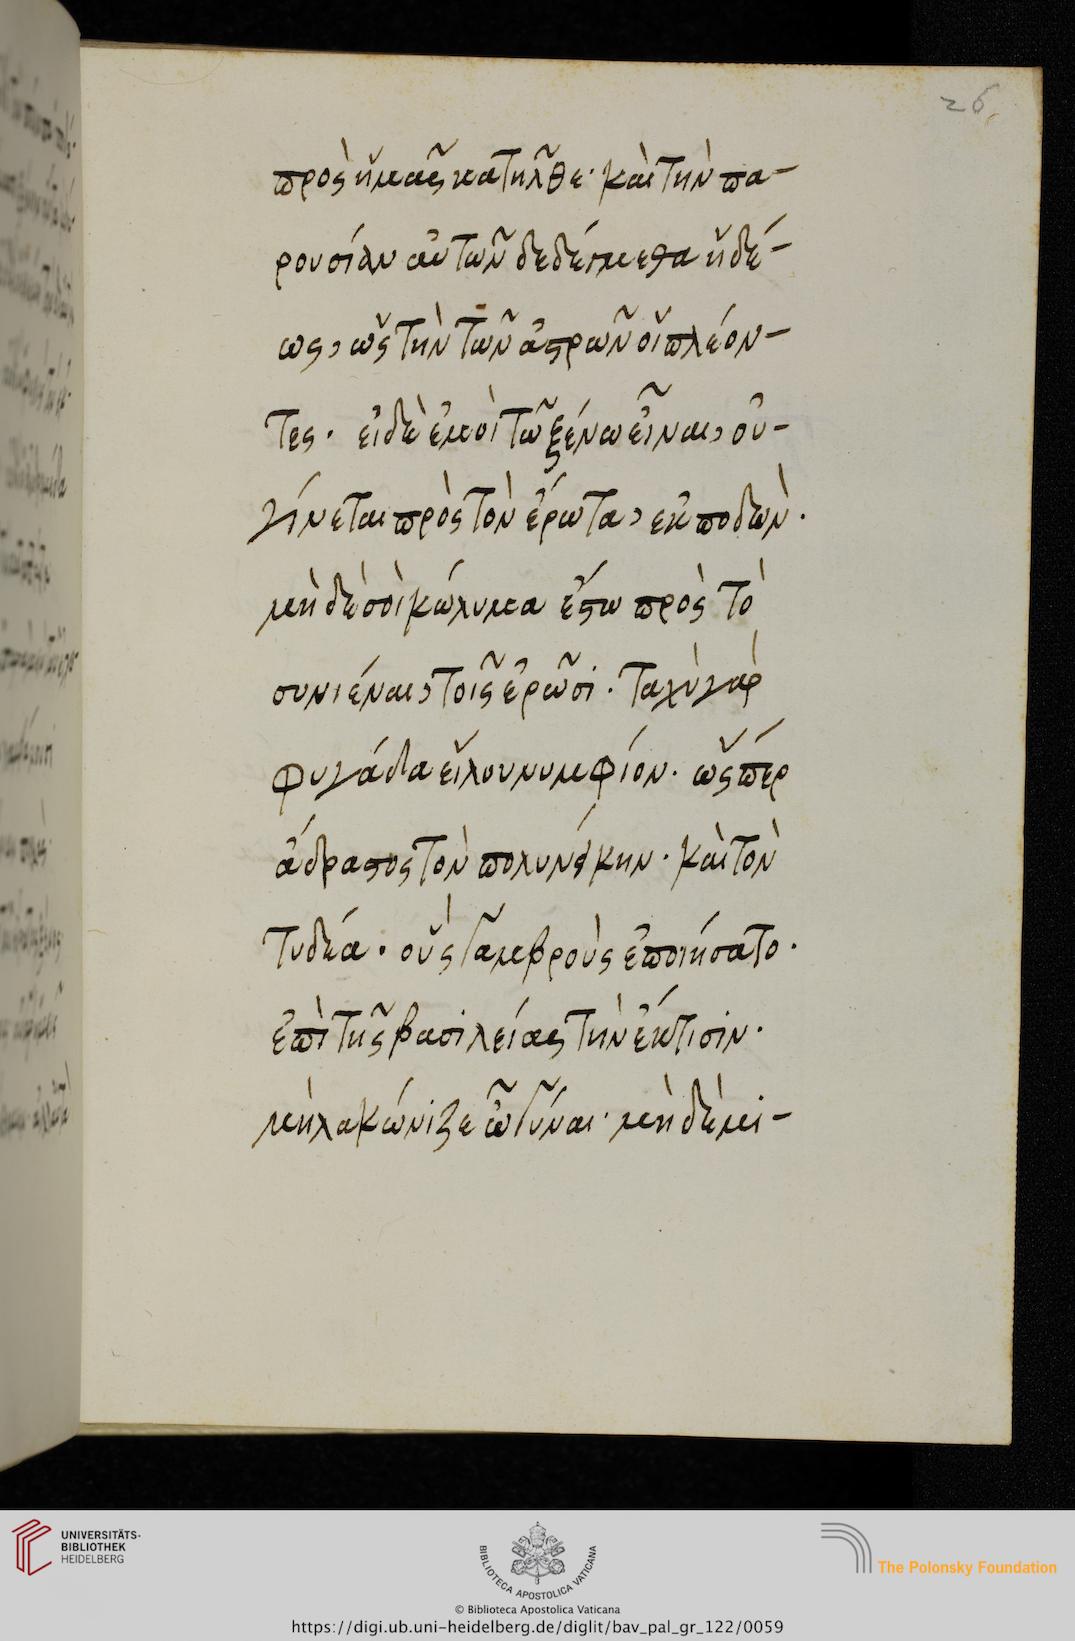 26.
πρὸς ἡμᾶς κατῆλθε· καὶ τὴν πα-
ρουσίαν αὐτῶν δεδέγμεθα ἡδέ-
ως, ὡς τὴν τῶν ἄστρων οἱ πλέον-
τες. εἰ δὲ ἐμοὶ τῶ ξένω εἶναι, οὐ-
γίνεται πρὸς τὸν ἔρωτα, ἐκποδὼν.
μὴ δὲ σὸι κώλυμα ἔστω πρὸς τὸ
συνιέναι, τοῖς ἐρῶσι. ταχὺ γὰρ
φυγάδα εἵλου νυμφίον. ὥςπερ
ἄδραστος τὸν πολυνείκην. καὶ τὸν
τυδέα. οὓς γαμβροὺς ἐποιήσατο.
ἐπὶ τῆς βασιλείας τὴν ἔκτισιν.
μὴ λακώνιζε ὦ γύναι· μὴ δὲ μι-
UNIVERSITÄTS-
BIBLIOTHEK
HEIDELBERG
BIBLIOTECA APOSTOLICA VATICANA
The Polonsky Foundation
© Biblioteca Apostolica Vaticana
https://digi.ub.uni-heidelberg.de/diglit/bav_pal_gr_122/0059